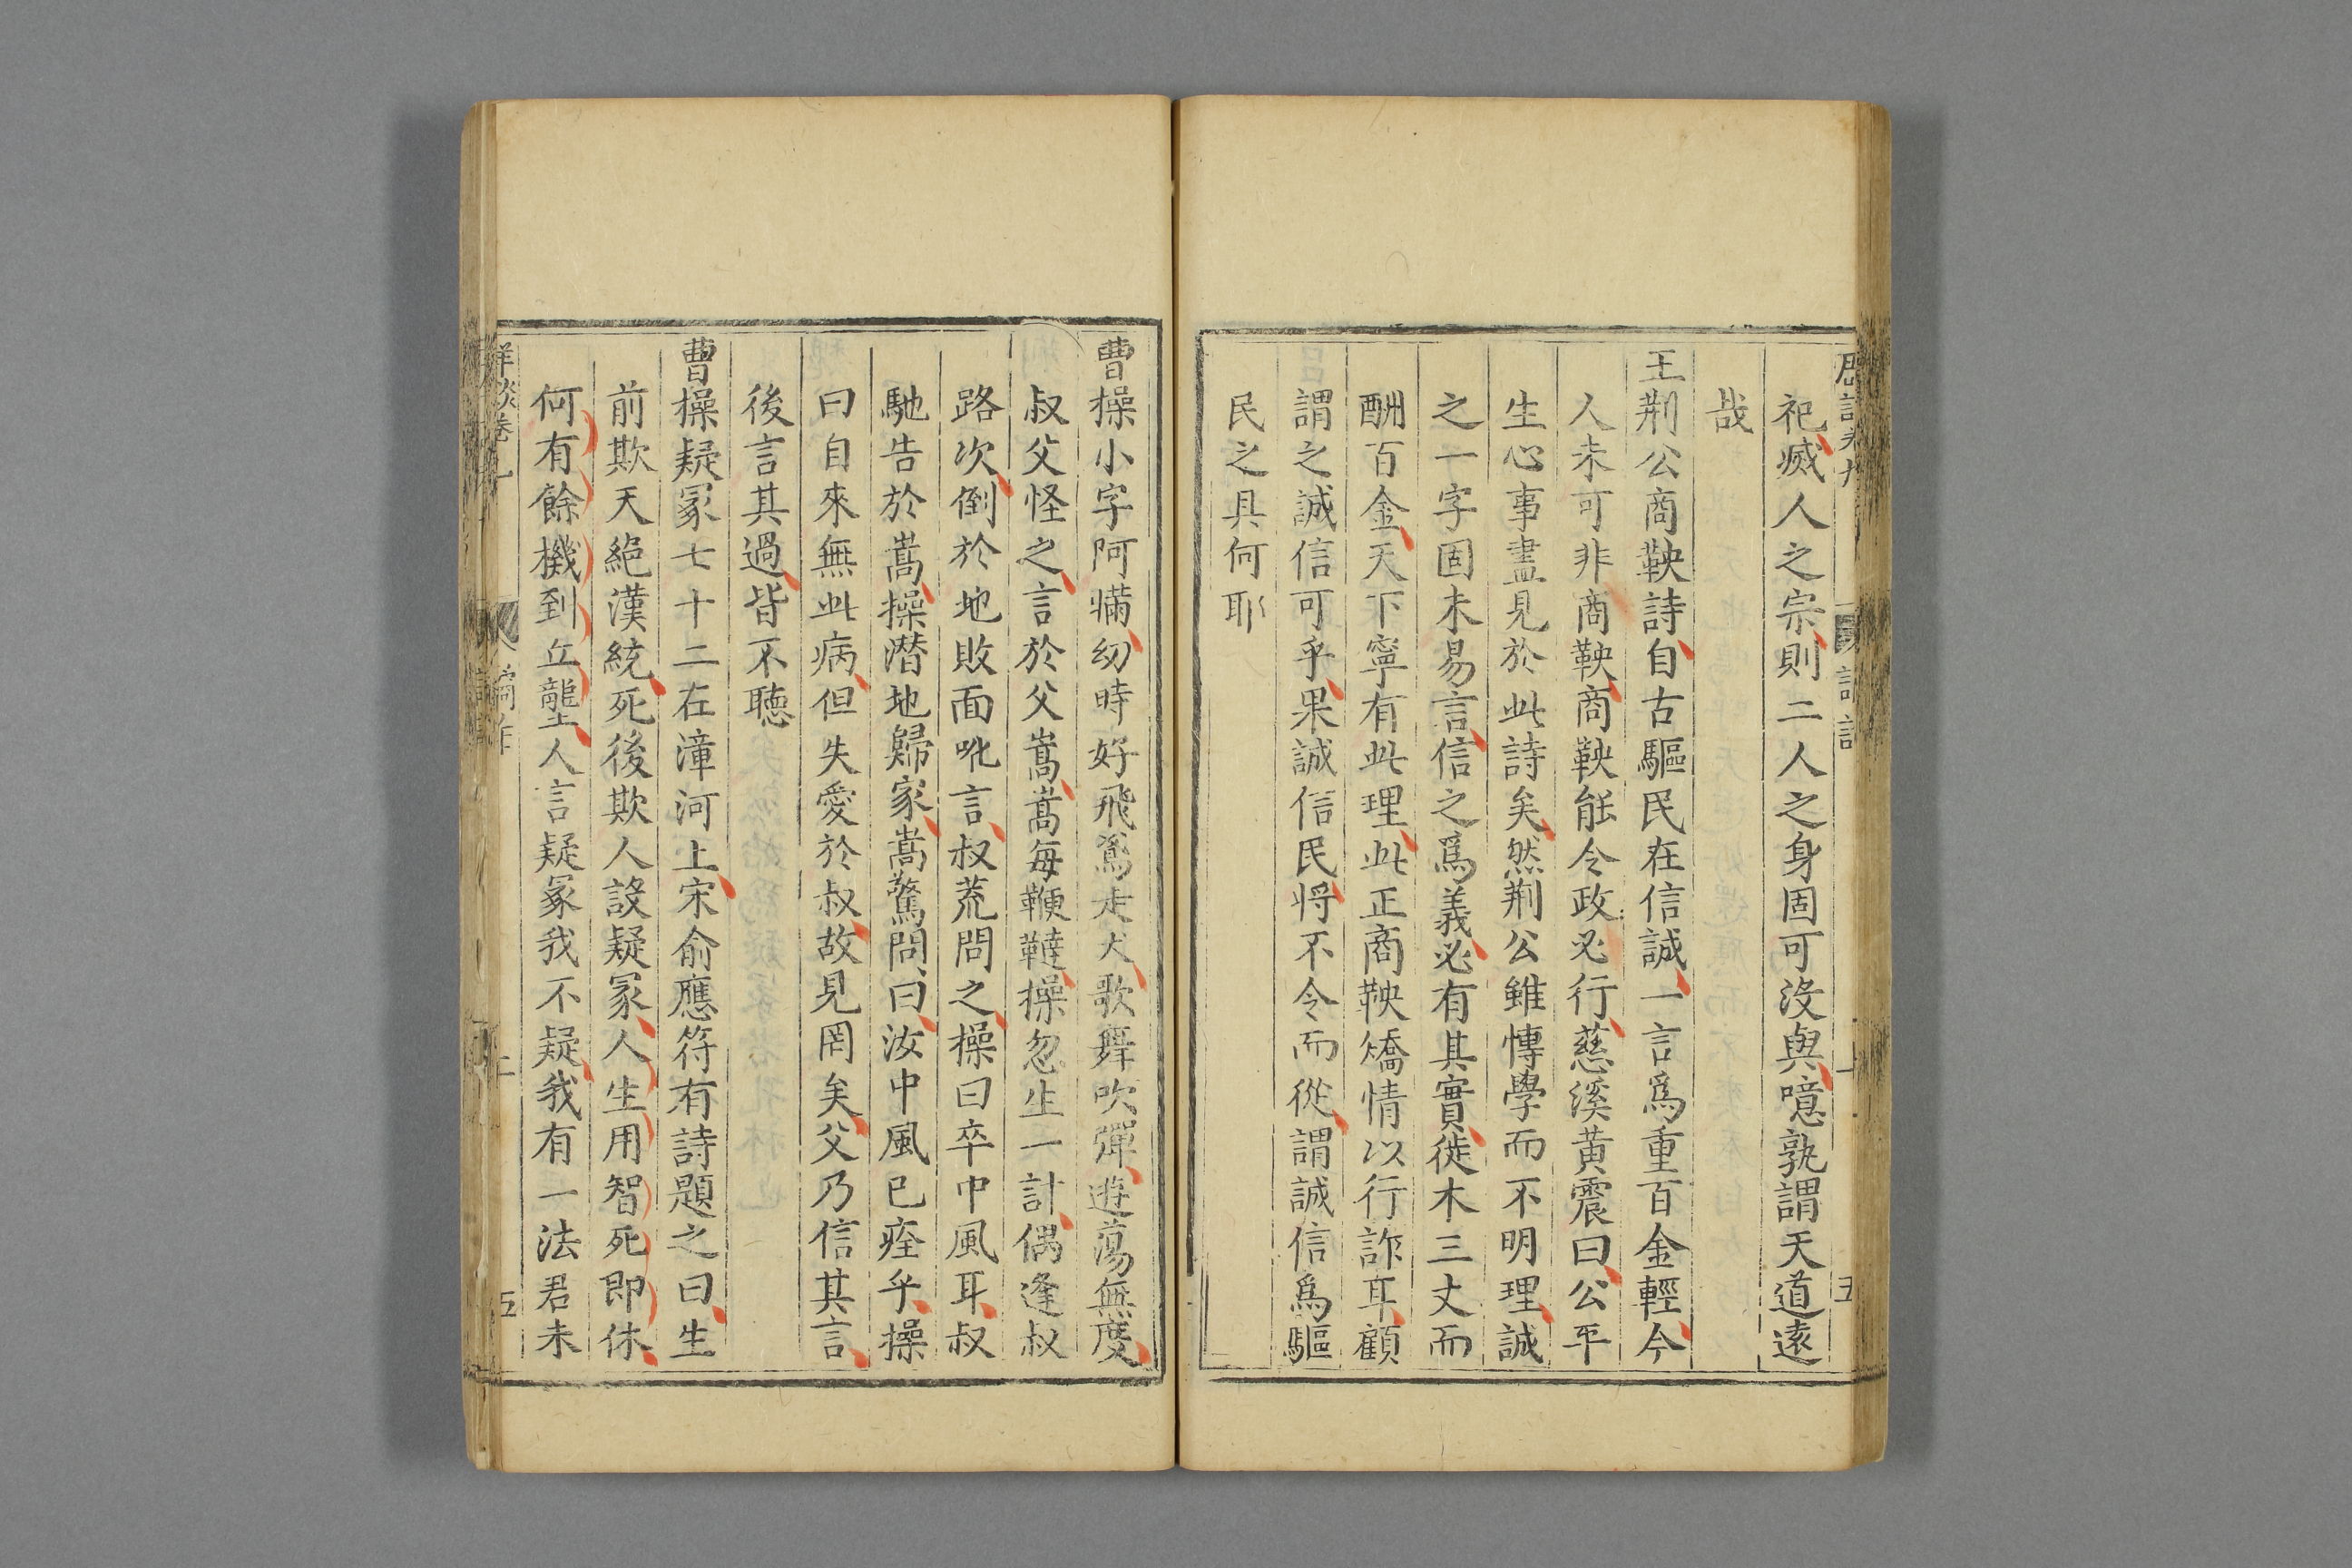 祀滅人之宗則二人之身固可沒與噫孰謂天道遠
哉
王荆公商鞅詩自古驅民在信誠一言爲重百金輕今
人未可非商鞅商鞅能令政必行慈溪黄震曰公平
生心事盡見於此詩矣然荆公雖慱學而不明理誠
之一字固未易言信之爲義必有其實徙木三丈而
酬百金天下寧有此理此正商鞅矯情以行詐耳顧
謂之誠信可乎果誠信民將不令而從謂誠信爲驅
民之具何耶
曹操小字阿瞞幼時好飛鷹走犬歌舞吹彈遊蕩無度
叔父怪之言於父嵩嵩每鞭韃操忽生一計偶逢叔
路次倒於地敗面吪言叔荒問之操曰卒中風耳叔
馳告於嵩操潜地歸家嵩驚問曰汝中風已痊乎操
曰自來無此病但失愛於叔故見罔矣父乃信其言
後言其過皆不聽
曹操疑冢七十二在漳河上宋俞應符有詩題之曰生
前欺天絕漢統死後欺人設疑冢人生用智死即休
何有餘機到丘壟人言疑冢我不疑我有一法君未